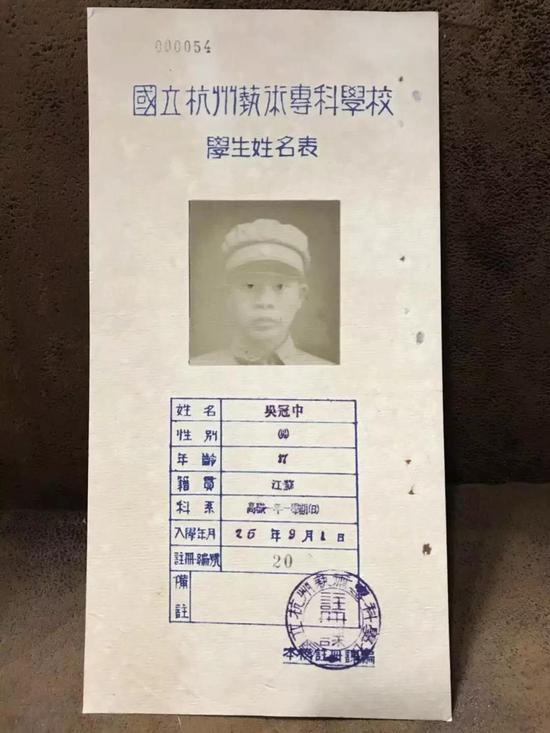 000054
國立杭州藝術專科學校
學生姓名表
姓名 吳冠中
性別
年齡 17
籍貫 江蘇
科系 高職一年一學期
入學年月 25年9月1日
註冊編號 20
備註
國立杭州藝術專科學校
註冊
本校註冊課編